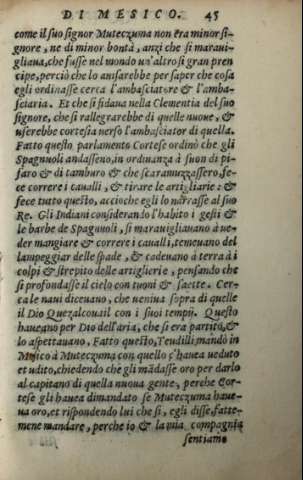 DI MESICO. 45
come il suo signor Muteczuma non era minor si-
gnore, ne di minor bontà, anzi che si maraui-
gliaua, che fusse nel mondo un'altro si gran pren
cipe, perciò che lo auisarebbe per saper che cosa
egli ordinasse cerca l'ambasciatore & l'amba-
sciaria. Et che si fidaua nella Clementia del suo
signore, che si rallegrarebbe di quelle nuoue, &
userebbe cortesia uerso l'ambasciator di quella.
Fatto questo parlamento Cortese ordinò che gli
Spagnuoli andasseno, in ordinanza à suon di pi-
faro & di tamburo & che scaramuzzassero, fe-
ce correre i caualli, & tirare le artigliarie: &
fece tutto questo, accioche egli lo narrasse al suo
Re. Gli Indiani considerando l'habito i gesti &
le barbe de Spagnuoli, si marauigliauano à ue-
der mangiare & correre i caualli, temeuano del
lampeggiar delle spade, & cadeuano à terra à i
colpi & strepito delle artiglierie, pensando che
si profondasse il cielo con tuoni & saette. Cer-
ca le naui diceuano, che ueniua sopra di quelle
il Dio Quezalcoualt con i suoi tempij. Questo
haueano per Dio dell'aria, che si era partito, &
lo aspettauano. Fatto questo, Teudilli mandò in
Mesico à Muteczuma con quello c'haueа ueduto
et udito, chiedendo che gli mãdasse oro per darlo
al capitano di quella nuoua gente, perche Cor-
tese gli hauea dimandato se Muteczuma haue-
ua oro, et rispondendo lui che si, egli disse, fatte-
mene mandare, perche io & la mia compagnia
sentiamo